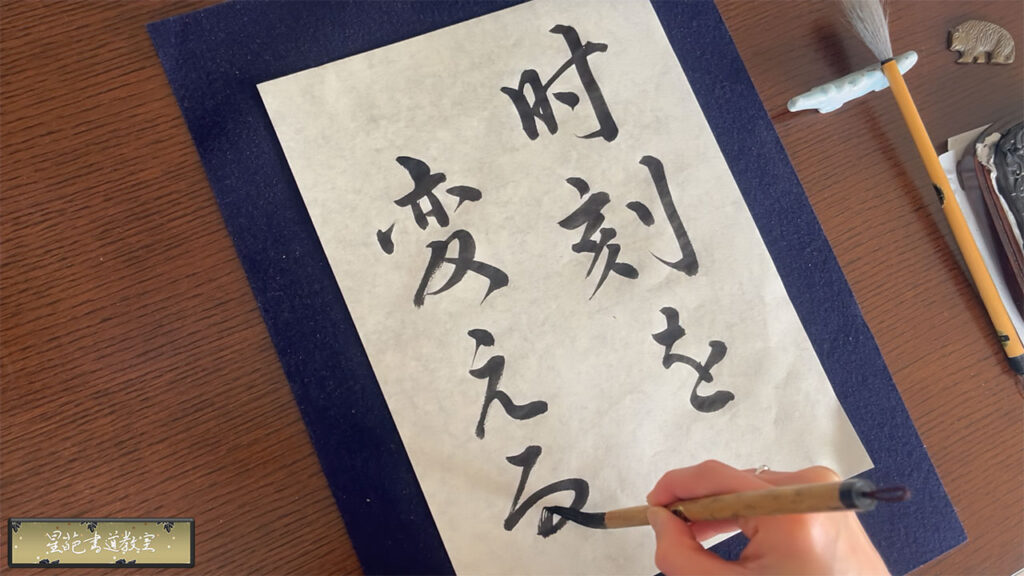 时刻を
変える
星苑書道教室